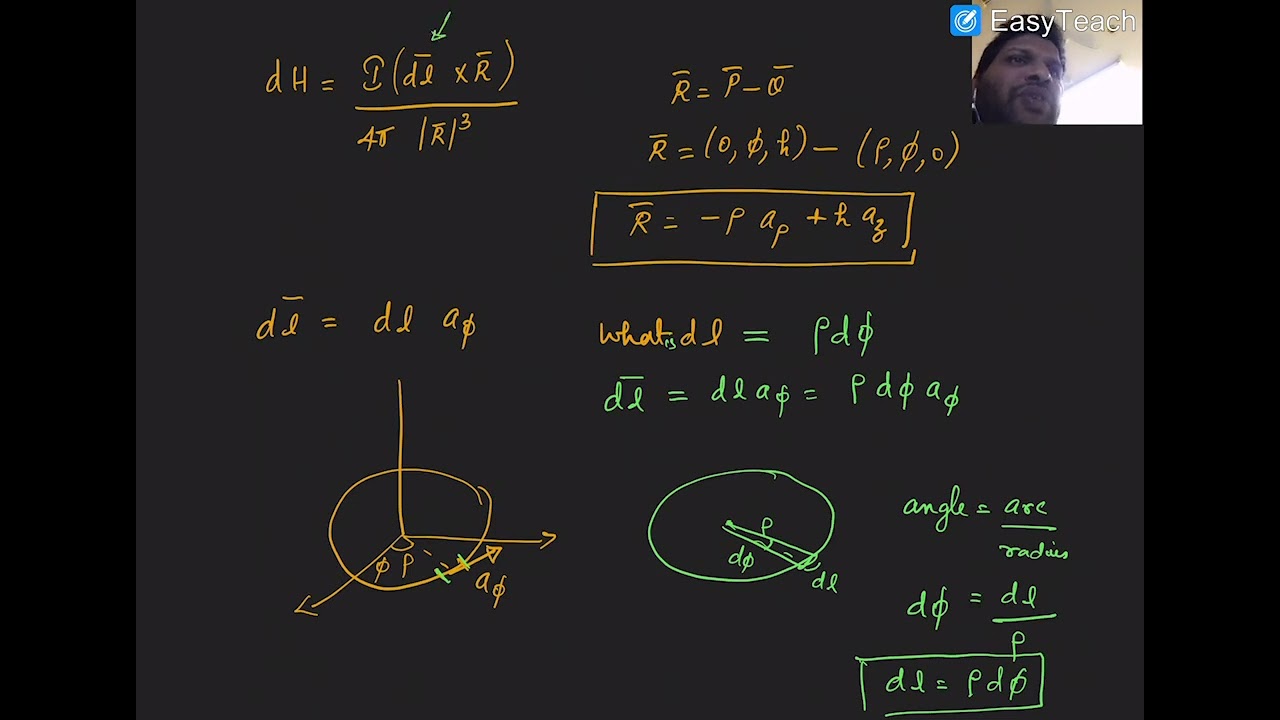 EasyTeach
dH = I (dl̄ × R̄)
4π |R̄|³
R̄ = P̄ – Q̄
R̄ = (0, φ, h) – (ρ, φ, 0)
R̄ = – ρ aρ + h a_z
dl̄ = dl aφ
what is dl = ρ dφ
dl̄ = dl aφ = ρ dφ aφ
φ ρ
aφ
ρ
dφ
dl
angle = arc
radius
dφ = dl
ρ
dl = ρ dφ